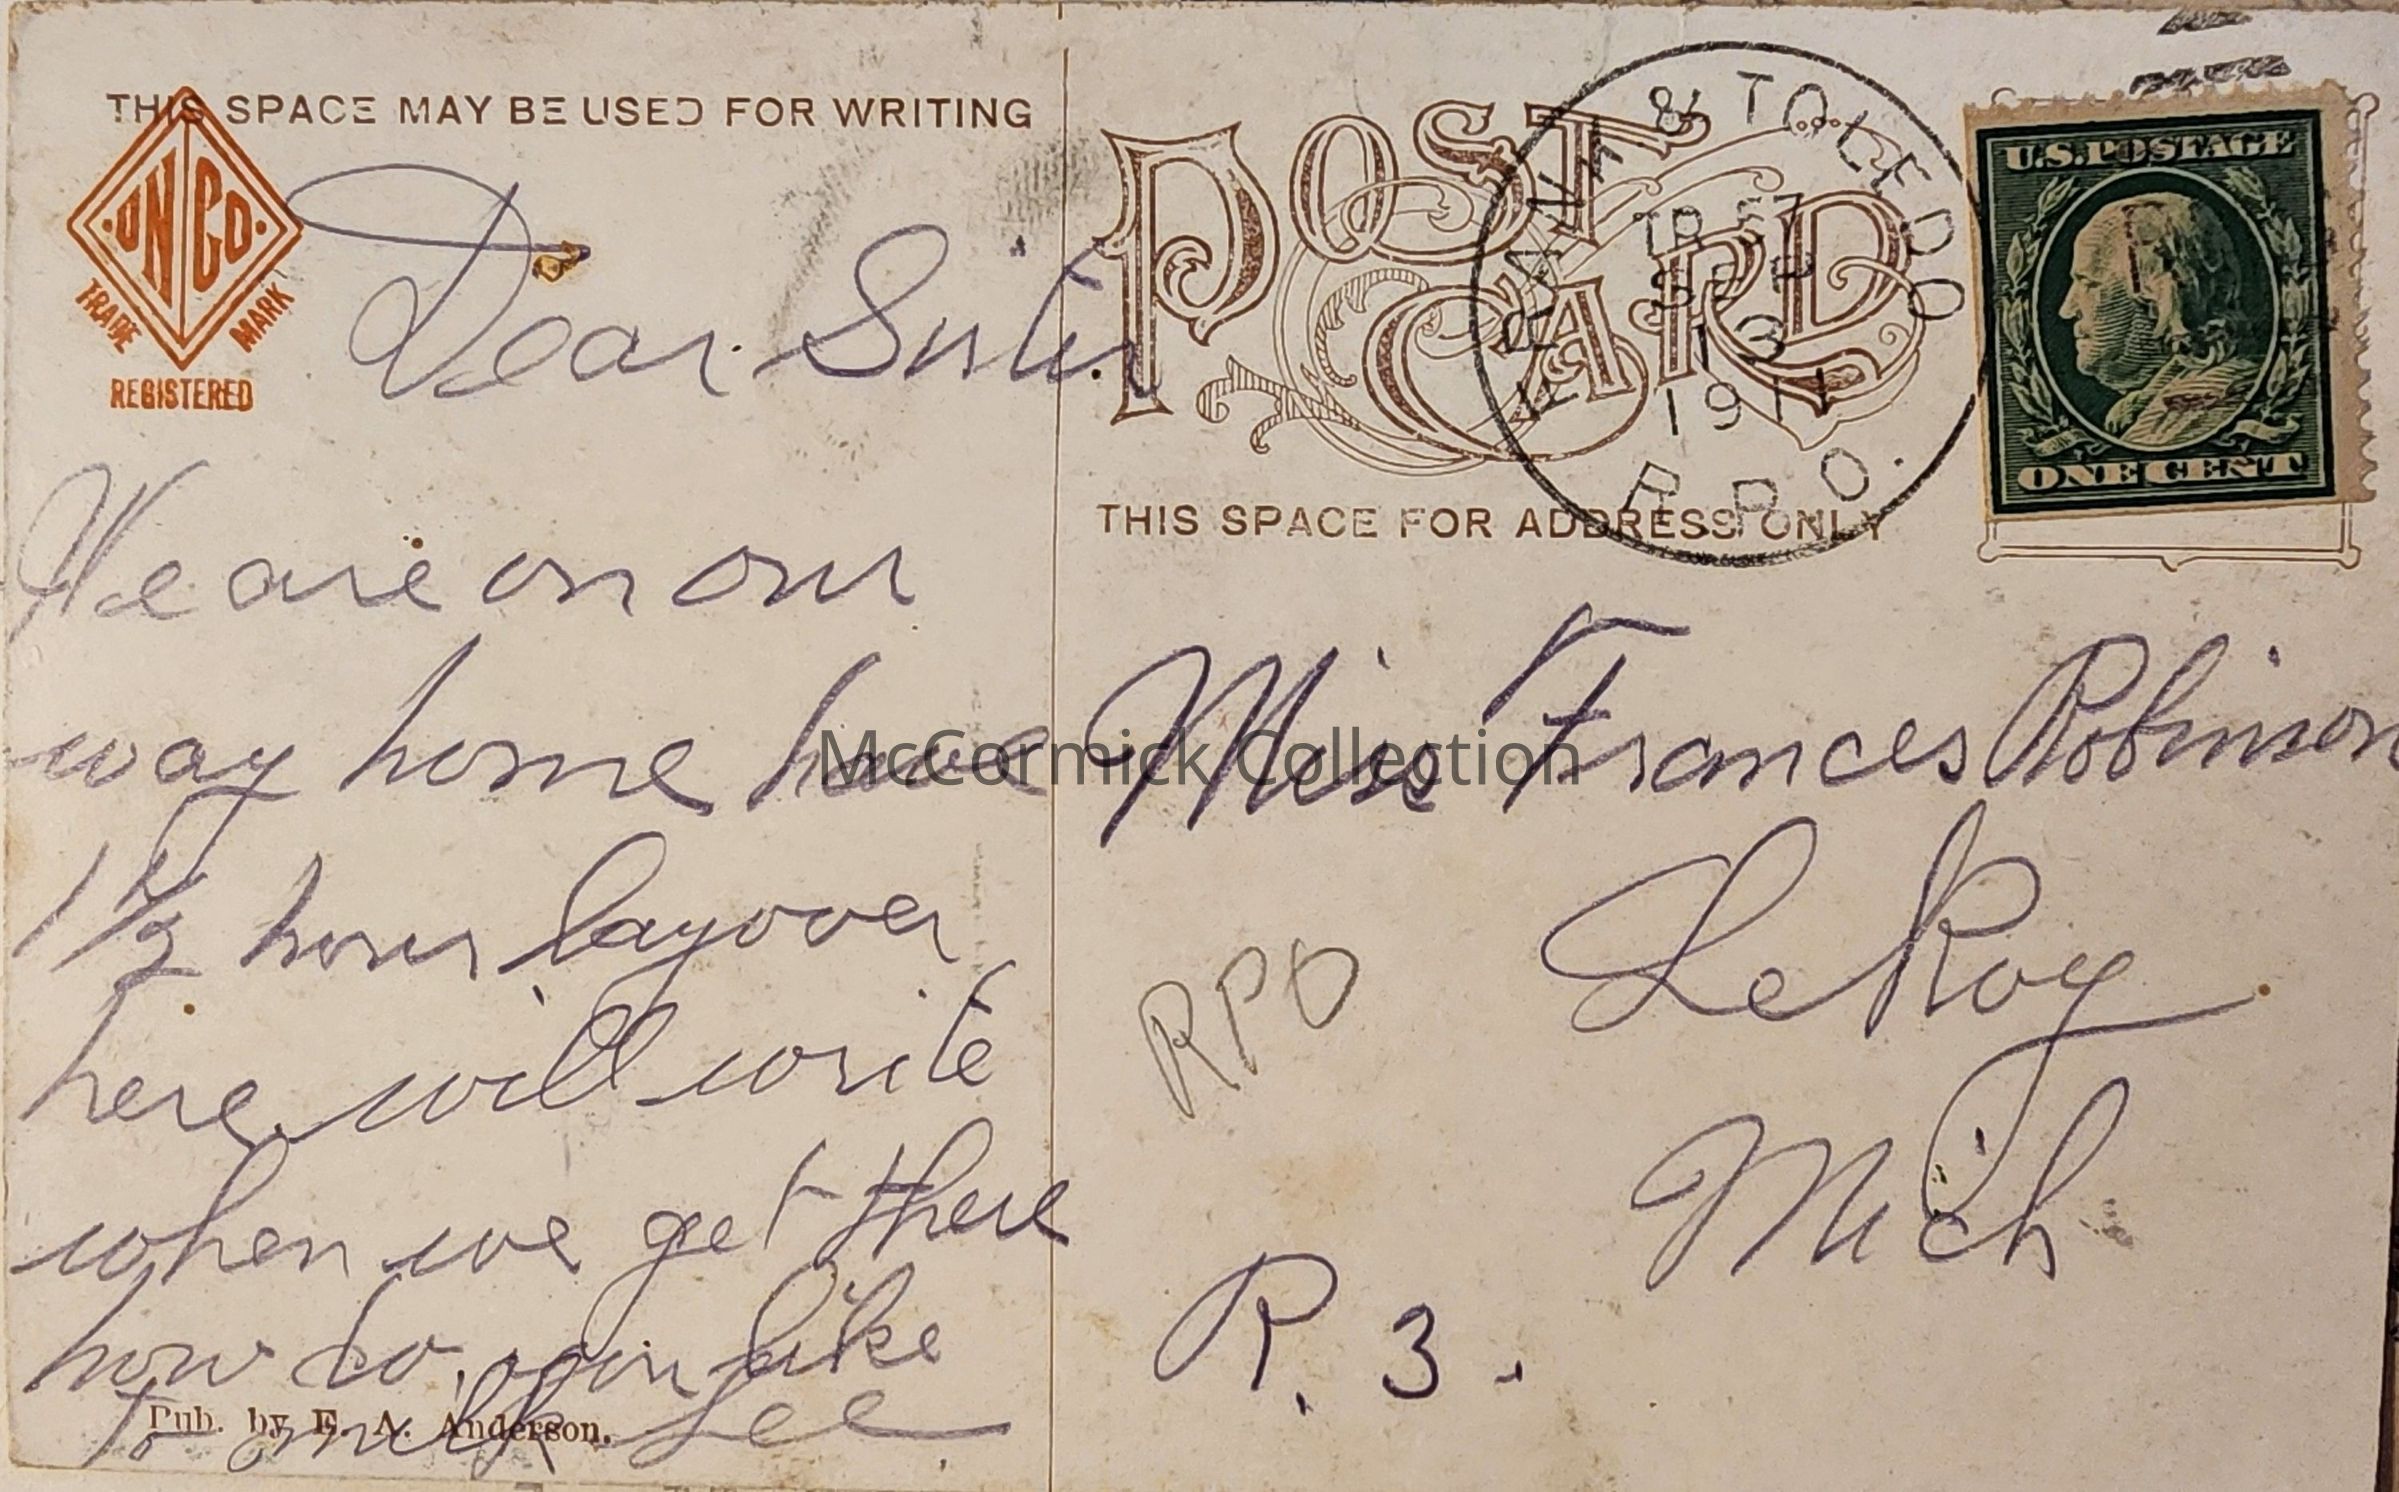 THIS SPACE MAY BE USED FOR WRITING
UNCO
TRADE MARK
REGISTERED
Dear Sister
We are on our
way home have
1 1/2 hour layover
here will write
when we get there
how do you like
to milk Lee
Pub. by E. A. Anderson.
POST CARD
THIS SPACE FOR ADDRESS ONLY
FRANK & TOLEDO
TR 57
SEP
13
1911
R.P.O.
U.S. POSTAGE
ONE CENT
Miss Frances Robinson
LeRoy
Mich
R. 3.
RPO
McCormick Collection